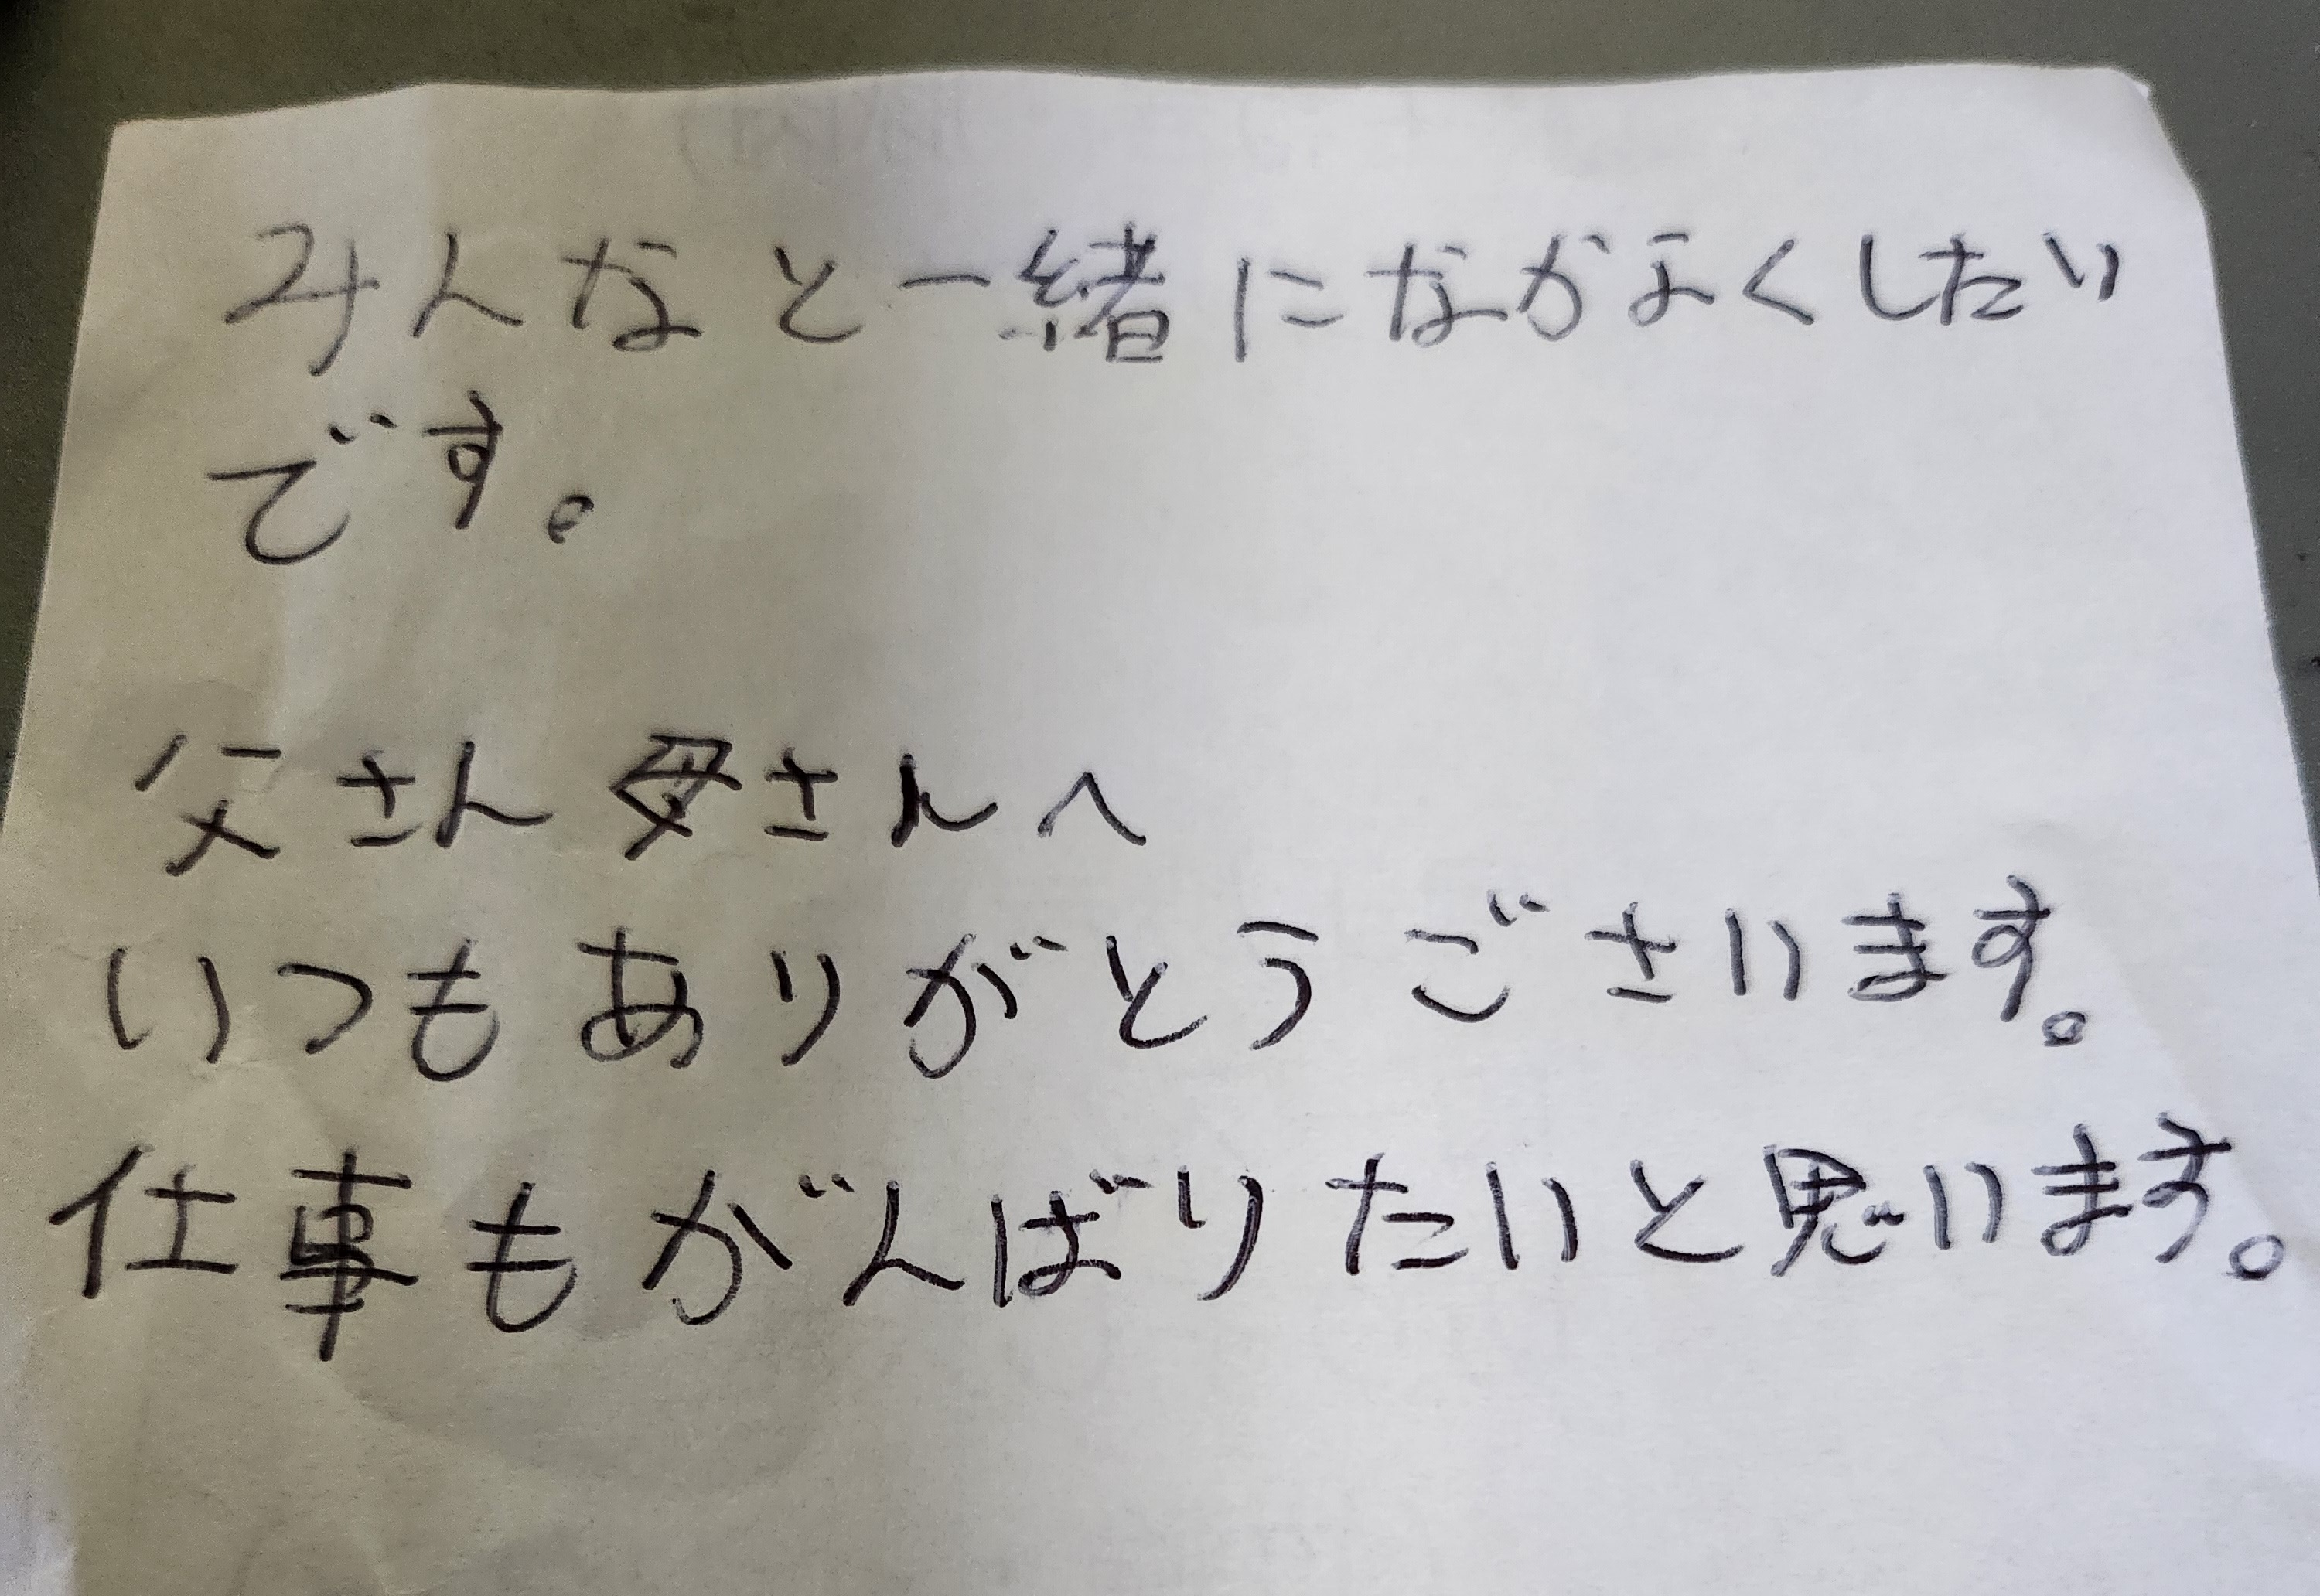 みんなと一緒になかよくしたい
です。
父さん母さんへ
いつもありがとうごさいます。
仕事もがんばりたいと思います。